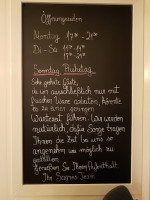 Öffnungszeiten
Montag 17°° - 21°°
Di - So 11³⁰ - 14³⁰
17°° - 21°°
Sonntag Ruhetag
Sehr geehrte Gäste,
da wir ausschließlich nur mit
frischer Ware arbeiten, könnte
es zu einer geringen
Wartezeit führen. Wir werden
natürlich dafür Sorge tragen
Ihnen die Zeit bei uns so
angenehm wie möglich zu
gestalten.
Genießen Sie Ihren Aufenthalt.
Ihr Team